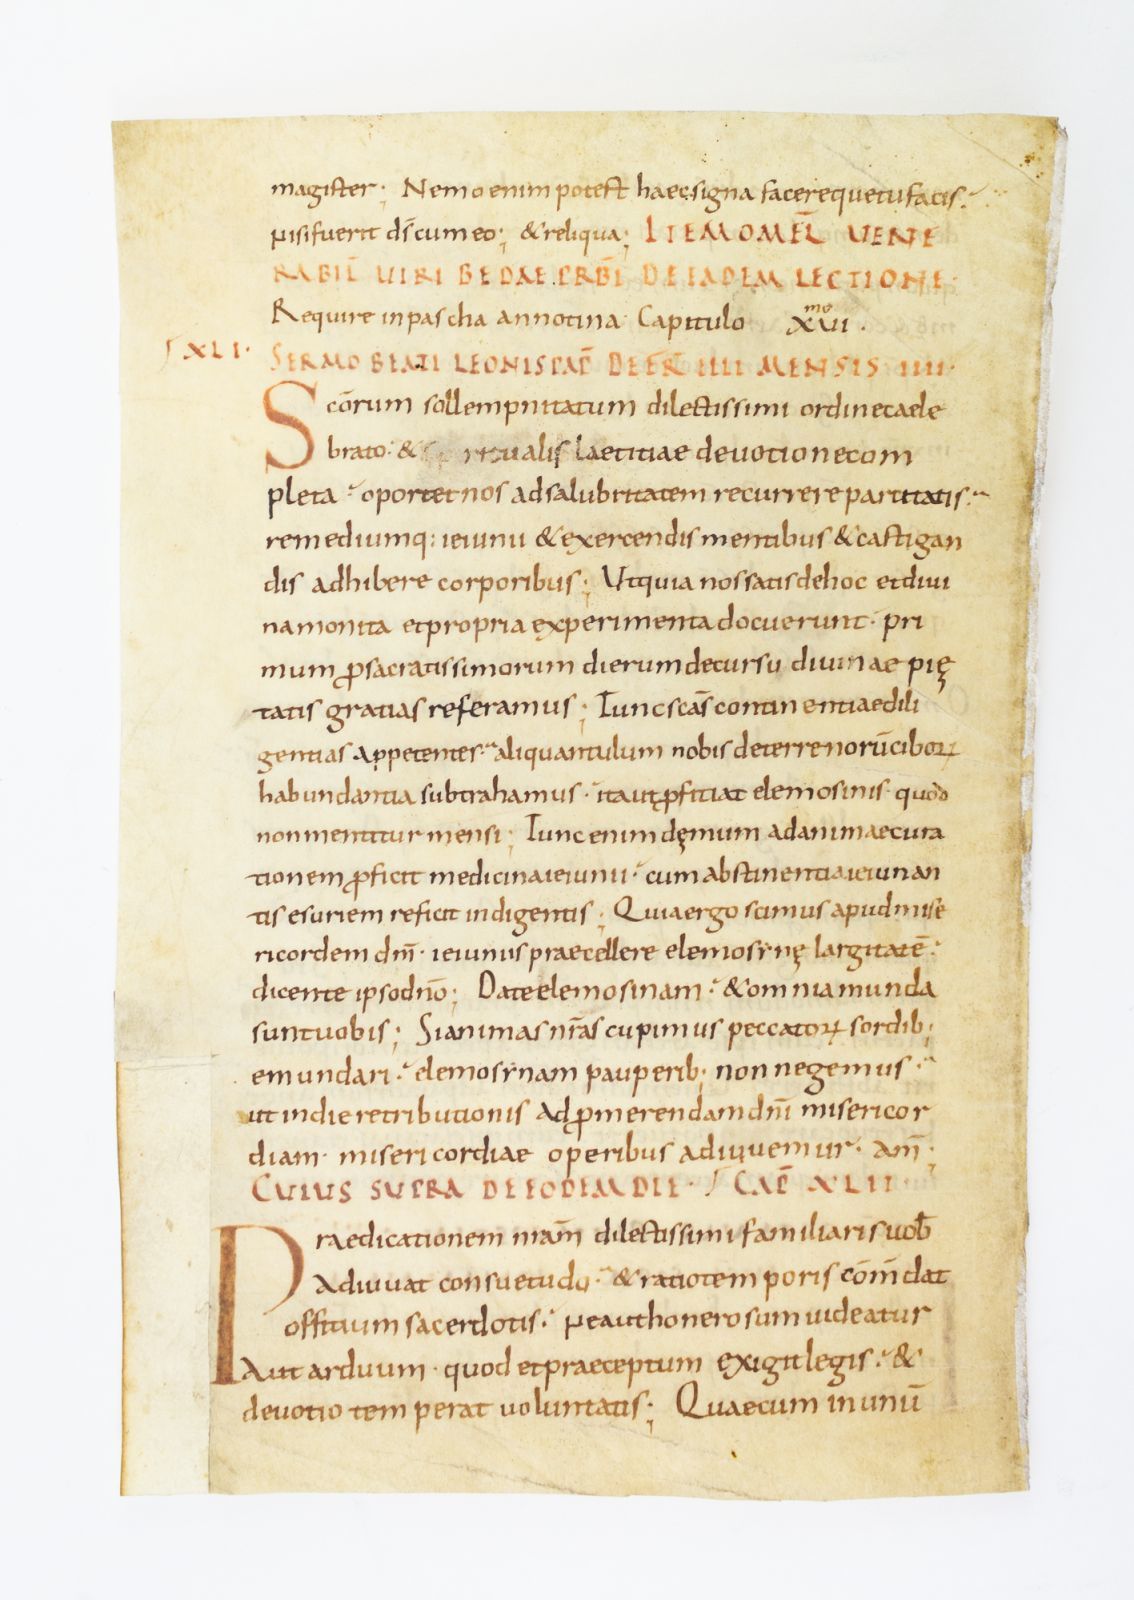 magister; Nemo enim potest haec signa facere que tu facis.
nisi fuerit dſ̄ cum eo; & reliqua; ITEM OMEL̄ VENE
RABIL̄ VIRI BEDAE PRB̄I DE EADEM LECTIONE·
Require in pascha annotina· Capitulo XLVII^mo.
XLI· SERMO BEATI LEONIS PAP̄ DE FER̄ IIII MENSIS IIII·
Scōrum sollempnitatum dilectissimi ordine caele
brato· & ritualis laetitiae devotione com
pleta· oportet nos ad salubritatem recurrere partitatis·
remediumq: ieiunii & exercendis mentibus & castigan
dis adhibere corporibus; Ut quia nos satis de hoc et divi
na monita et propria experimenta docuerunt· pri
mum ꝓ sacratissimorum dierum decursu divinae pię
tatis gratias referamus; Tunc scās continentiae dili
gentias appetentes· aliquantulum nobis de terrenorū ciborꝝ
habundantia subtrahamus· ita ut ꝓfitiat elemosinis· quod
non mentitur mensi; Tunc enim dęmum ad animae cura
tionem ꝓficit medicina ieiunii· cum abstinentia ieiunan
tis esuriem reficit indigentis; Quia ergo scimus apud mise
ricordem dn̄m· ieiuniis praecellere elemosynę largitatē·
dicente ipso dn̄o; Date elemosinam· & omnia munda
sunt vobis; Si animas nr̄as cupimus peccatorꝝ sordib;
emundari· elemosynam pauperib; non negemus·
ut in die retributionis ad ꝓmerendam dn̄i misericor
diam· misericordiae operibus adiuvemur· am̄;
CUIUS SUPRA DE EODEM DIE· CAP̄ XLII·
Praedicationem nr̄am dilectissimi familiaris vob̄
Adiuvat consuetudo· & ratio temporis cōm̄dat
offitium sacerdotis· ne aut honerosum videatur
Aut arduum· quod et praeceptum exigit legis· &
devotio temperat voluntatis; Quae cum in unū